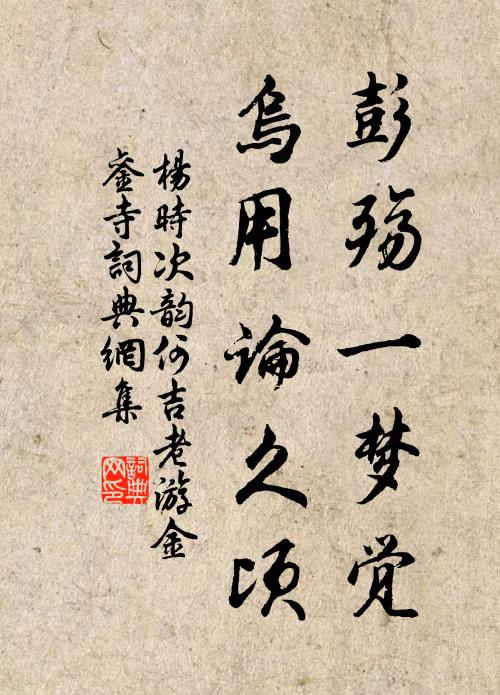 彭殇一梦觉
乌用论久顷
杨时次韵何吉老游金
銮寺词典網集
詞典
网印